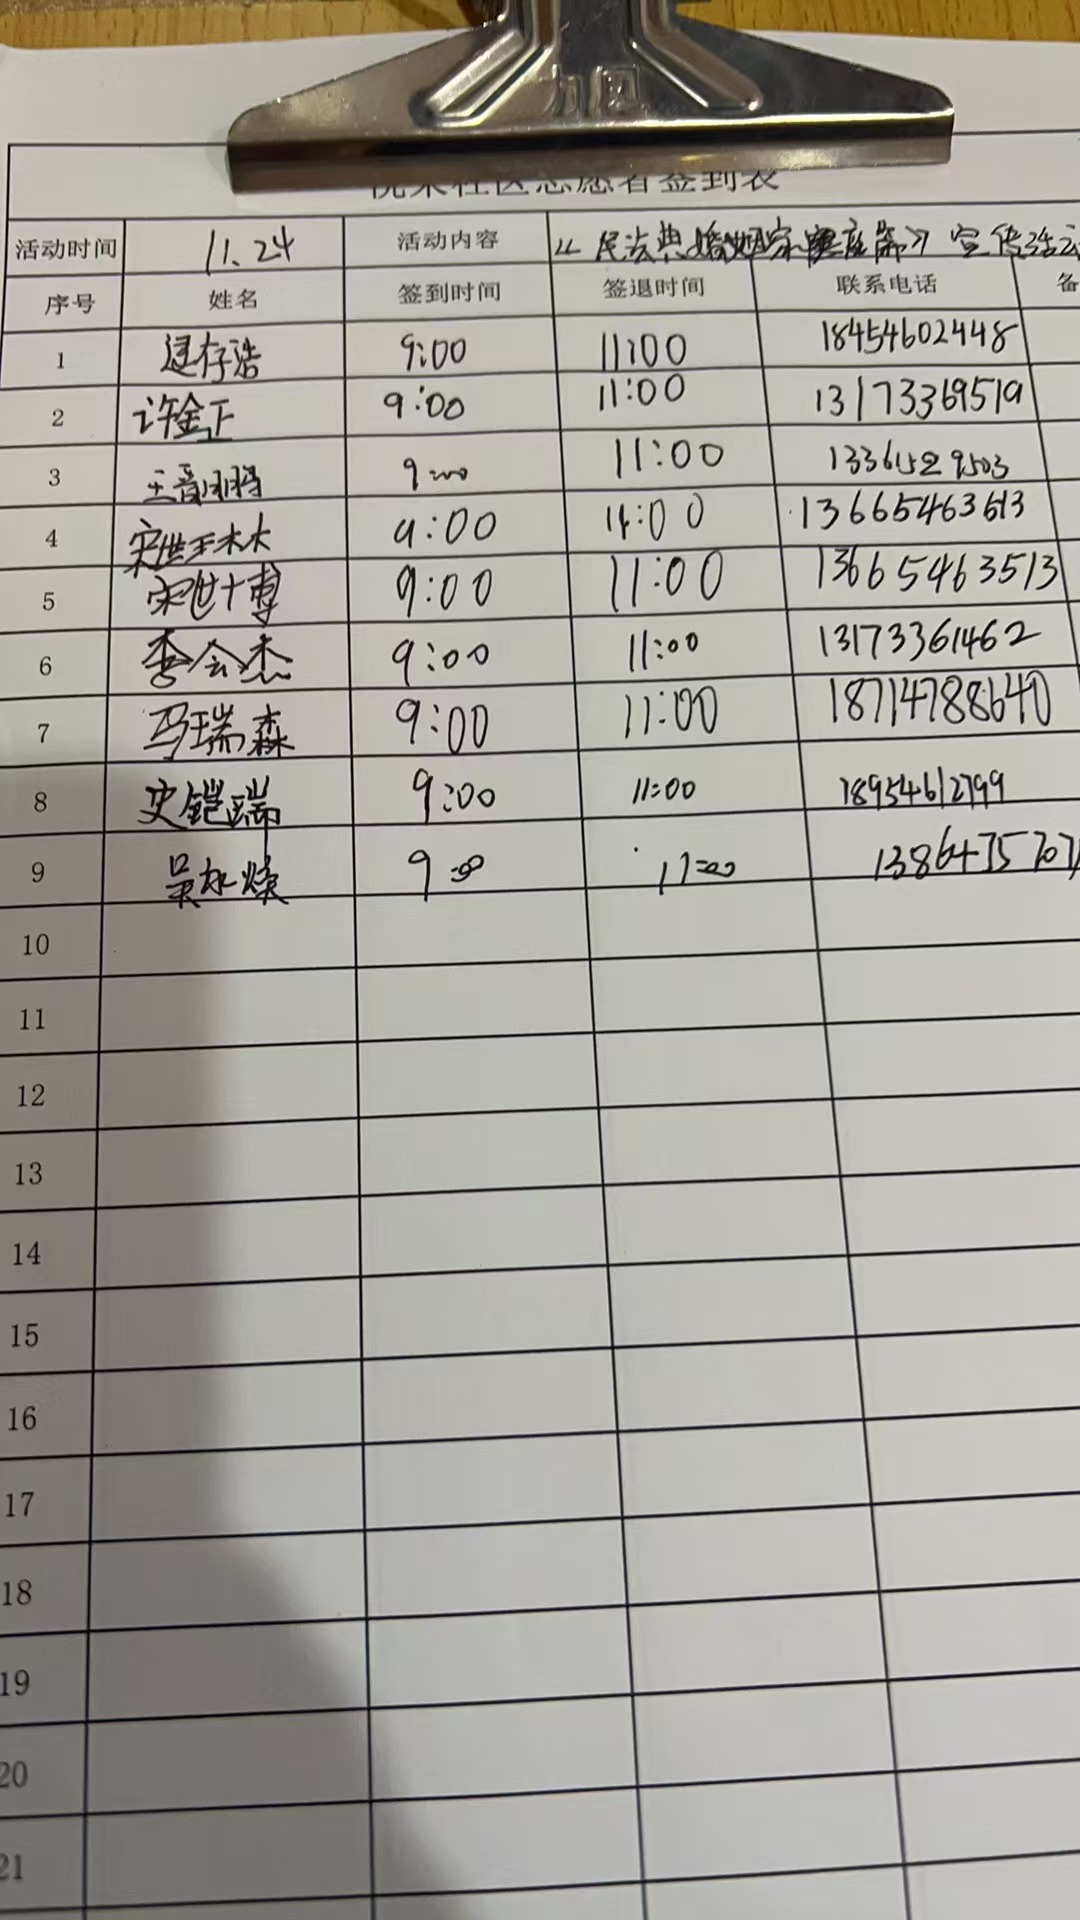 社区志愿者签到表
活动时间 11.24 活动内容 《民法典婚姻家庭篇》宣传活动
序号 姓名 签到时间 签退时间 联系电话 备
1 存浩 9:00 11:00 18454602448
2 许金正 9:00 11:00 13173369519
3 王 9:00 11:00 13361529503
4 宋世 9:00 11:00 13665463613
5 宋世博 9:00 11:00 13665463513
6 李会杰 9:00 11:00 13173361462
7 马瑞森 9:00 11:00 18714788640
8 史铠瑞 9:00 11:00 18954612799
9 吴 9:00 11:00
10
11
12
13
14
15
16
17
18
19
20
21